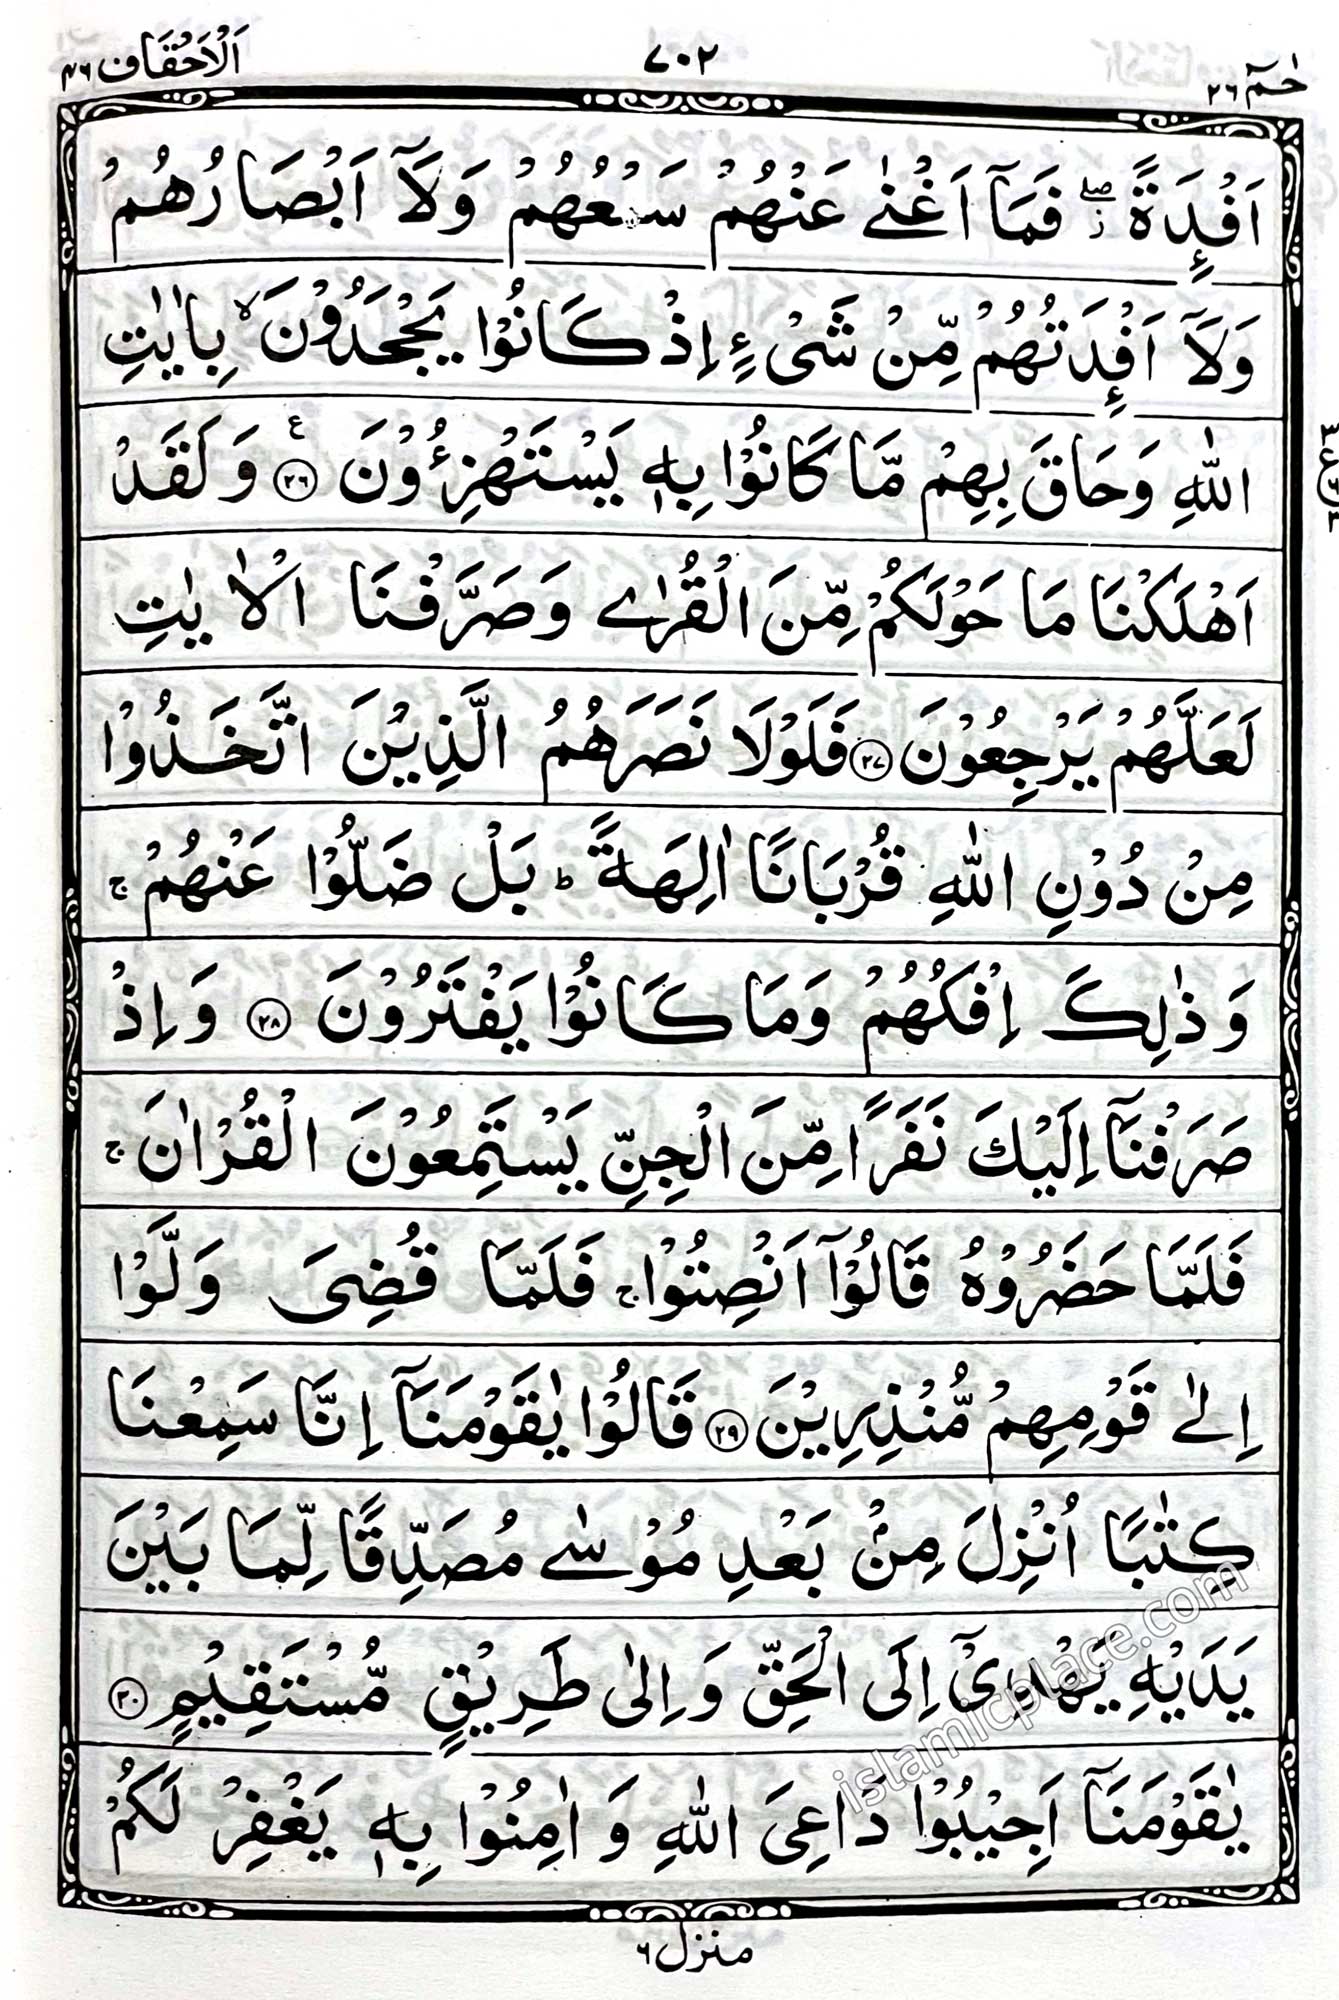 حٰمٓ ٢٦
٧٠٢
اَلْاَحْقَاف ٤٦
اَفْـِٕدَةً ۖز فَمَآ اَغْنٰى عَنْهُمْ سَمْعُهُمْ وَلَآ اَبْصَارُهُمْ
وَلَآ اَفْـِٕدَتُهُمْ مِّنْ شَیْءٍ اِذْ كَانُوْا یَجْحَدُوْنَ ۙ بِاٰیٰتِ
اللّٰهِ وَحَاقَ بِهِمْ مَّا كَانُوْا بِهٖ یَسْتَهْزِءُوْنَ ﴿٢٦﴾ ع وَلَقَدْ
اَهْلَكْنَا مَا حَوْلَكُمْ مِّنَ الْقُرٰى وَصَرَّفْنَا الْاٰیٰتِ
لَعَلَّهُمْ یَرْجِعُوْنَ ﴿٢٧﴾ فَلَوْلَا نَصَرَهُمُ الَّذِیْنَ اتَّخَذُوْا
مِنْ دُوْنِ اللّٰهِ قُرْبَانًا اٰلِهَةً ؕ بَلْ ضَلُّوْا عَنْهُمْ ۚ
وَذٰلِكَ اِفْكُهُمْ وَمَا كَانُوْا یَفْتَرُوْنَ ﴿٢٨﴾ وَاِذْ
صَرَفْنَآ اِلَیْكَ نَفَرًا مِّنَ الْجِنِّ یَسْتَمِعُوْنَ الْقُرْاٰنَ ۚ
فَلَمَّا حَضَرُوْهُ قَالُوْٓا اَنْصِتُوْا ۚ فَلَمَّا قُضِیَ وَلَّوْا
اِلٰى قَوْمِهِمْ مُّنْذِرِیْنَ ﴿٢٩﴾ قَالُوْا یٰقَوْمَنَآ اِنَّا سَمِعْنَا
كِتٰبًا اُنْزِلَ مِنْۢ بَعْدِ مُوْسٰى مُصَدِّقًا لِّمَا بَیْنَ
یَدَیْهِ یَهْدِیْٓ اِلَى الْحَقِّ وَاِلٰى طَرِیْقٍ مُّسْتَقِیْمٍ ﴿٣٠﴾
یٰقَوْمَنَآ اَجِیْبُوْا دَاعِیَ اللّٰهِ وَاٰمِنُوْا بِهٖ یَغْفِرْ لَكُمْ
منزل ٦
islamicplace.com